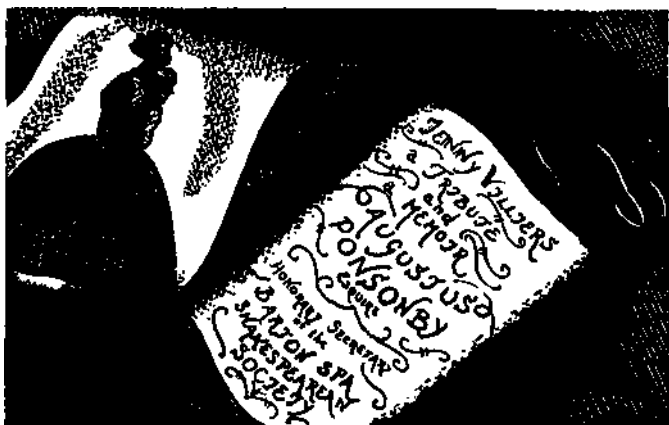 JENNY VILLIERS
a TRIBUTE
and
a MEMOIR
AUGUSTUS
PONSONBY
ESQUIRE
HONORARY SECRETARY
of the
BARTON SPA
SHAKESPEAREAN
SOCIETY